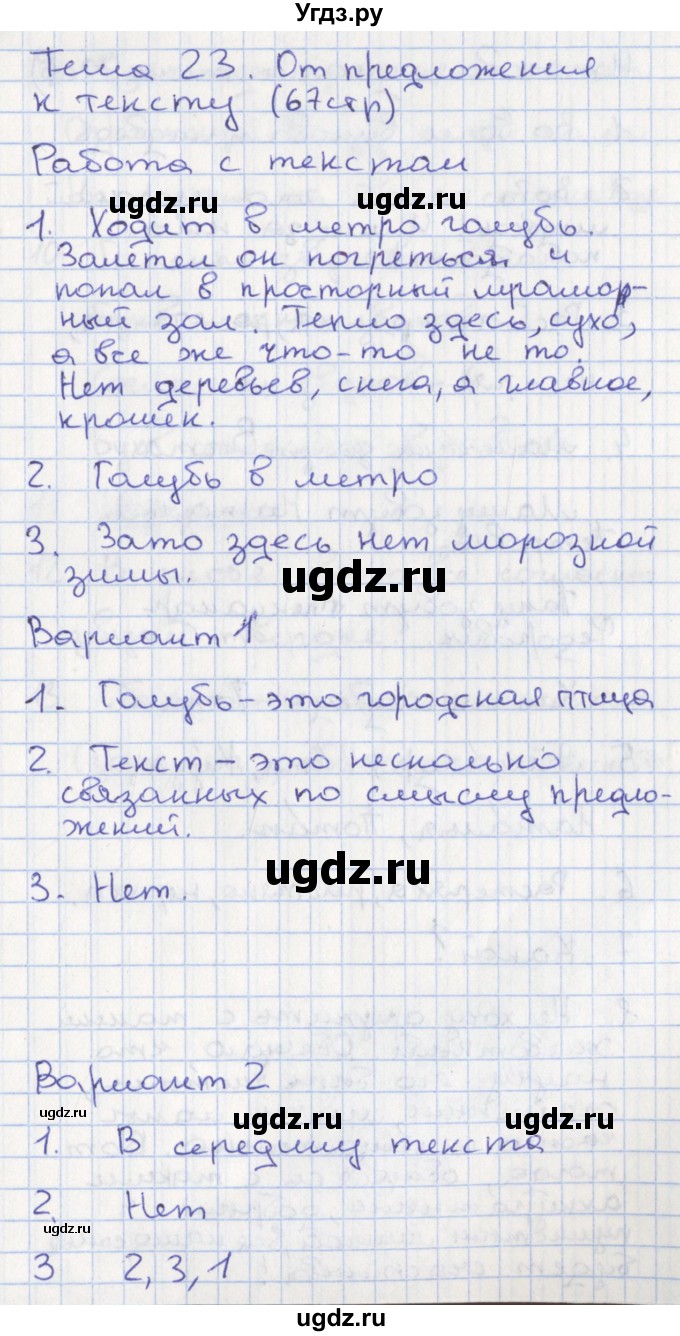 Угдз.ру
Тема 23. От предложения
к тексту (67стр)
Работа с текстом
ugdz.ru ugdz.ru
1. Ходит в метро голубь.
Залетел он погреться и
попал в просторный мрамор-
ный зал. Тепло здесь, сухо,
а все же что-то не то.
Нет деревьев, снега, а главное,
крошек.
2. Голубь в метро
3. Зато здесь нет морозной
зимы.
ugdz.ru
Вариант 1
1. Голубь - это городская птица
2. Текст - это несколько
связанных по смыслу предло-
жений.
ugdz.ru
3. Нет.
Вариант 2
ugdz.ru ugdz.ru ugdz.ru
1. В середину текста
2. Нет
ugdz.ru
3 2, 3, 1
ugdz.ru